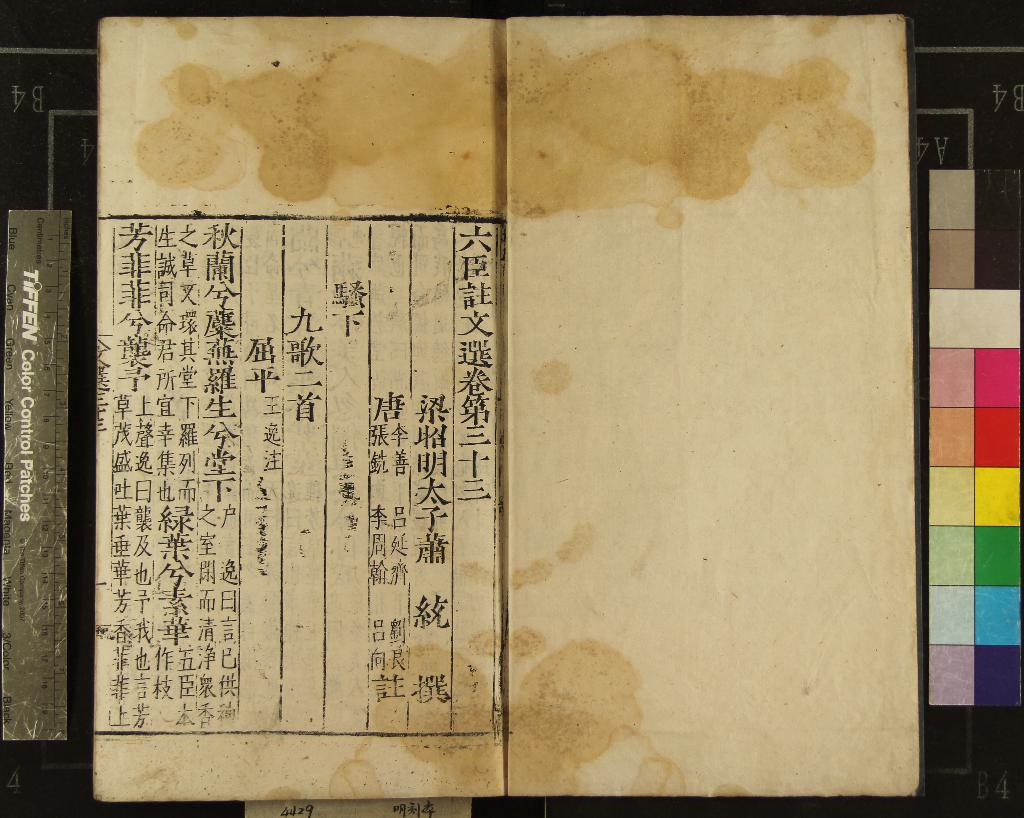 六臣註文選卷第三十三
梁昭明太子蕭 統 撰
唐李善 呂延濟 劉良
張銑 李周翰 呂向註
騷下
九歌二首
屈平王逸注
秋蘭兮麋蕪羅生兮堂下
逸曰言己供神
之室閑而清浄衆香
之草又環其堂下羅列而
生誠司命君所宜幸集也
綠葉兮素華
五臣本
作枝
芳菲菲兮襲予
上聲逸曰襲及也予我也言芳
草茂盛吐葉垂華芳香菲菲上
TIFFEN Color Control Patches
Centimetres
Inches
Blue
Cyan
Green
Yellow
Red
Magenta
White
3/Color
Black
B4
A4
4429
明刻本